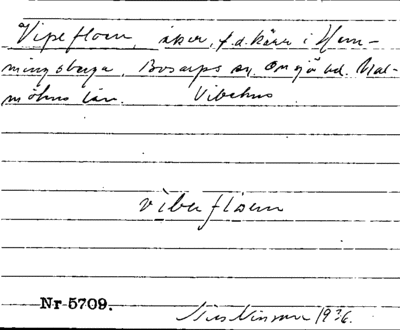 Vipefloen, åker, f.d. kärr i Hem-
mingsberga, Bosarps sn. Onsjö hd. Mal-
möhus län. Vibehus
vibefloen
Nr 5709.
1936.